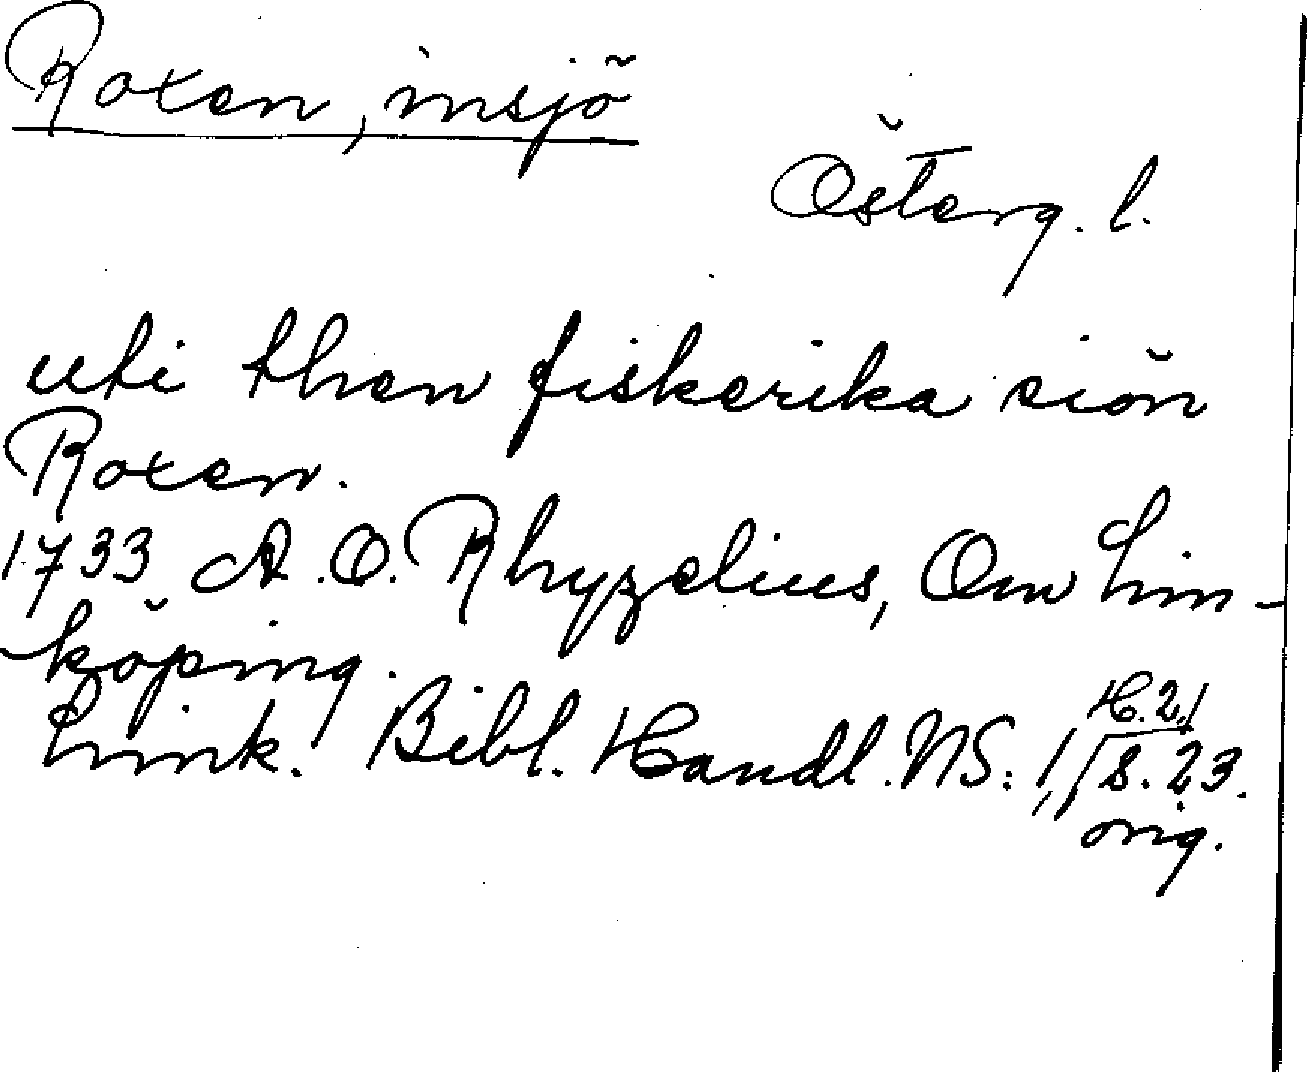 Roxen, insjö
Österg. l.
uti then fiskerika siön
Roxen.
1733 A.O. Rhyzelius, Om Lin-
köping.
Link. Bibl. Handl. NS: 1, H.2, s. 23.
orig.